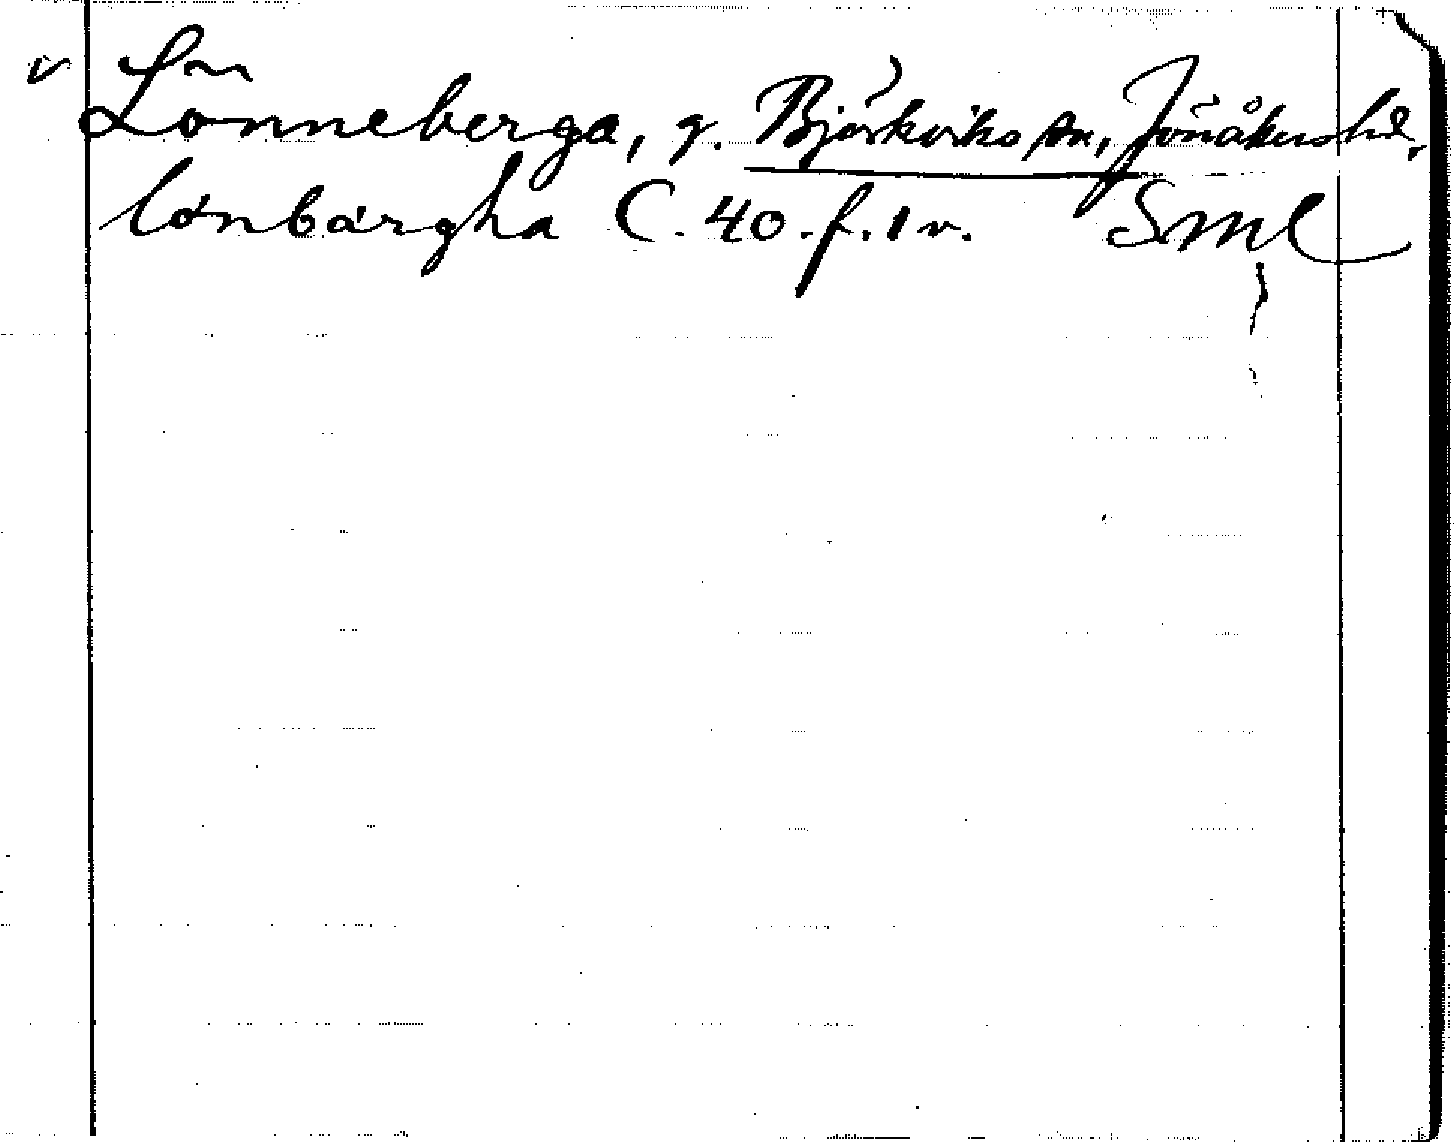 v Lönneberga, g. Björkviks sn, Jönåkers hd,
lönbärgha C. 40. f. 1 v. Sml